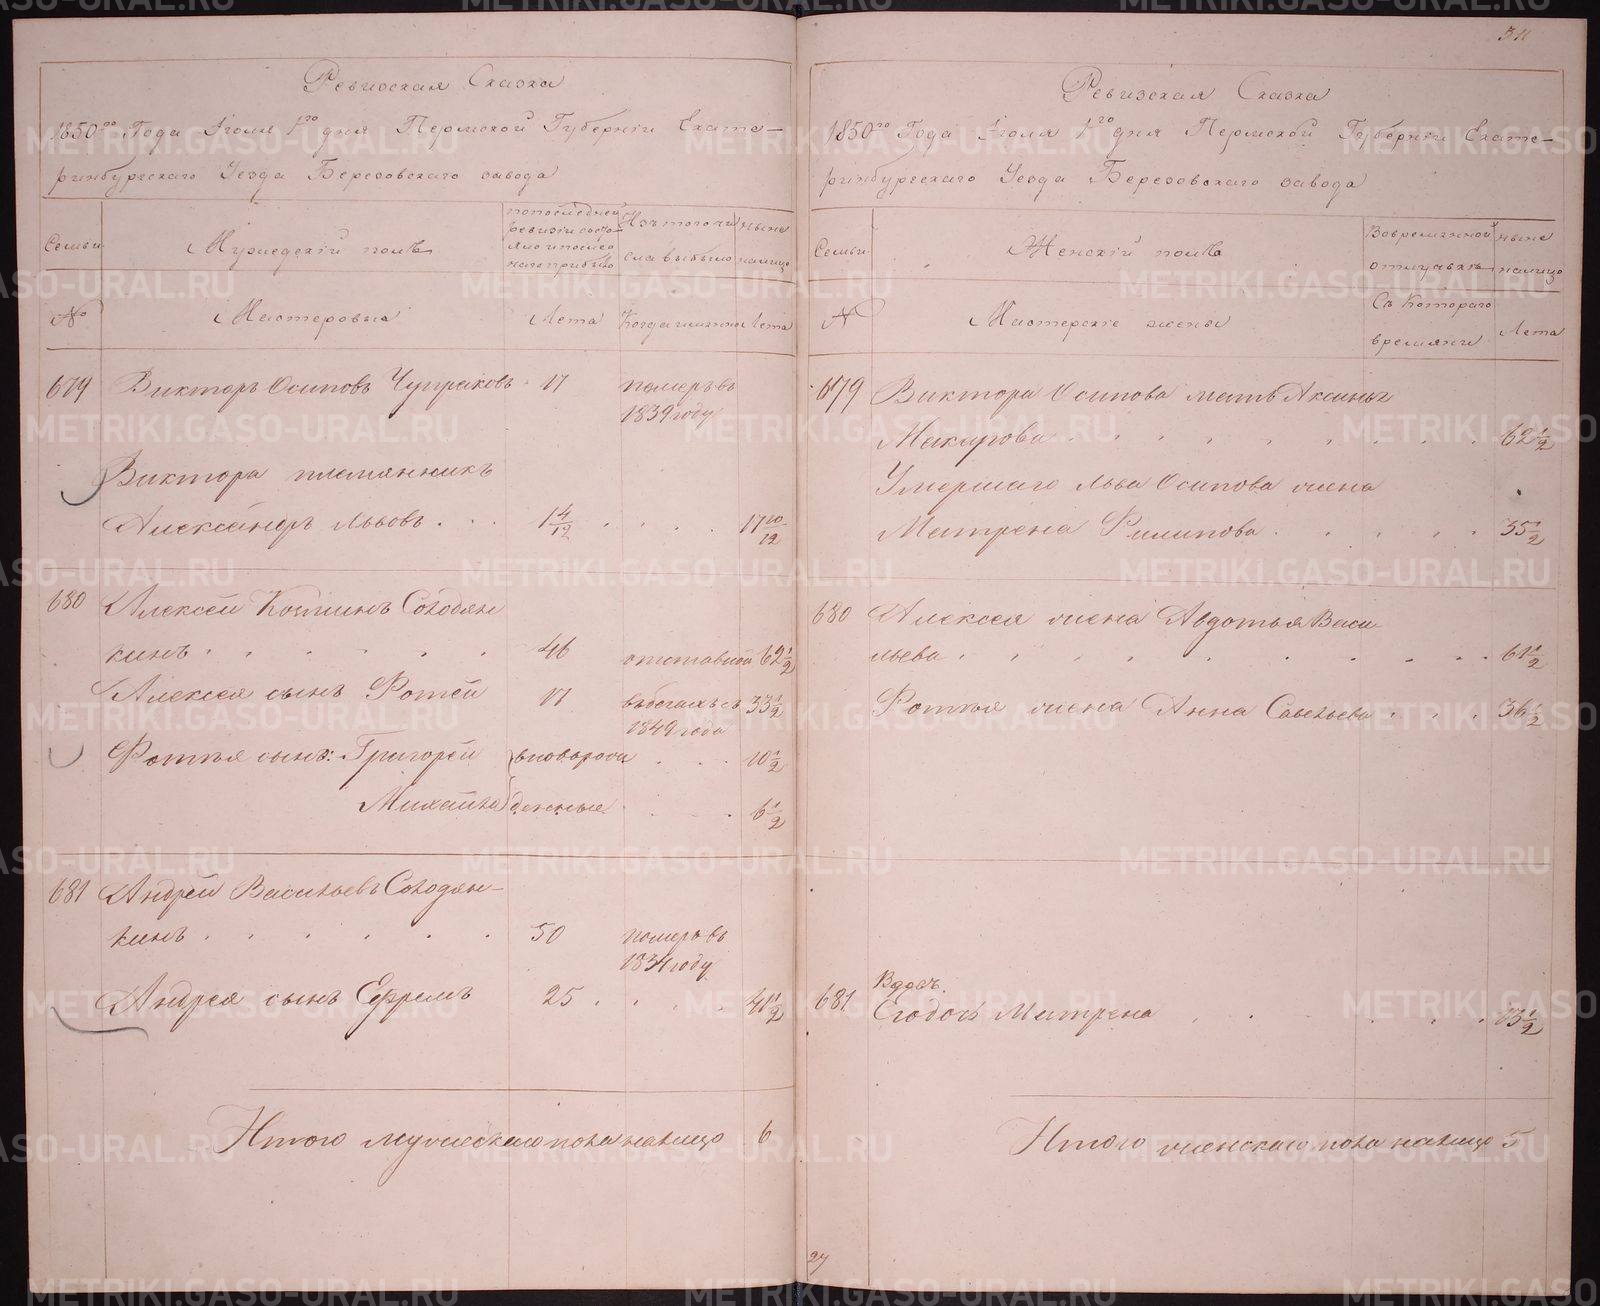 Ревизская Сказка
1850го Года Іюля 1го дня Пермской Губерніи Екате-
ринбургскаго Уезда Березовскаго завода
Семьи
Мужескій полъ
по последней
ревизіи состо-
яло и после
того прибыло
Изъ того чи
сла выбыло
ныне
налицо
№
Мастеровыя
Лета
Когда именно
Лета
679 Викторъ Осиповъ Чупраковъ 17 померъ въ
1839 году
Виктора племянникъ
Александръ Львовъ . . . 1 4/12 . . . . 17 10/12
680 Алексей Козминъ Солодян
кинъ . . . . . . 46 отставной 62 1/2
Алексея сынъ Фотей 17 въ бегахъ съ 33 1/2
1849 года
Фотъя сынъ: Григорей вновь рож 10 1/2
Михайло денные 6 1/2
681 Андрей Васильевъ Солодян-
кинъ . . . . . . 50 померъ въ
1834 году
Андрея сынъ Ефремъ 25 . . . . 41 1/2
Итого мужескаго пола налицо 6
311
Ревизская Сказка
1850го Года Іюля 1го дня Пермской Губерніи Екате-
ринбургскаго Уезда Березовскаго завода
Семьи
Женскій полъ
Во временной
отлучкѣ
ныне
налицо
№
Мастерскіе жены
Съ Котораго
времяни
Лета
679 Виктора Осипова мать Аксинья
Макарова . . . . . . . . 62 1/2
Умершаго Льва Осипова жена
Матрена Филипова . . . . . 35 1/2
680 Алексея жена Авдотья Васи
льева . . . . . . . . . 61 1/2
Фотъя жена Анна Савельева . . . 36 1/2
Вдов.
681 Матрена . . . . . . 1/2
Итого женскаго пола налицо 5